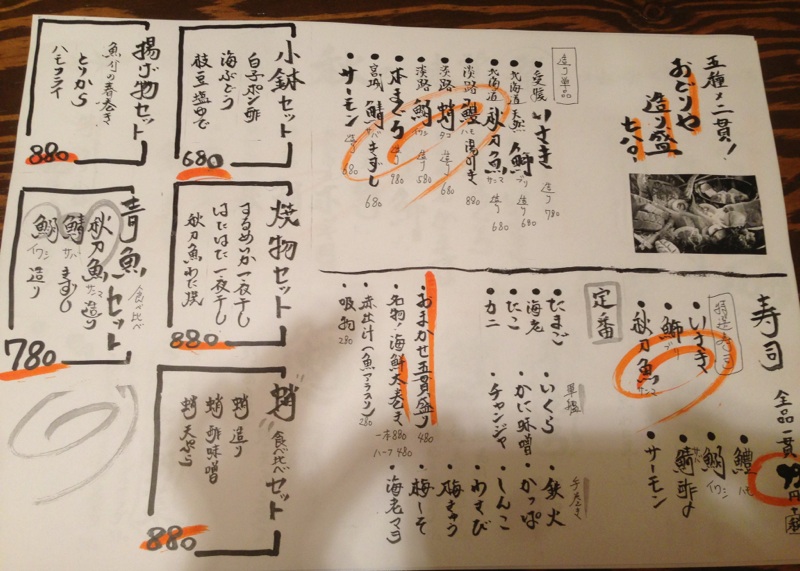 五種十二貫!
おどりや
造り盛
造り単品
いさき 造り 780
北海道天然 鰤 ブリ 造り 680
北海道 秋刀魚 サンマ 造り 680
淡路 鱧 ハモ 湯引き 880
淡路 蛸 タコ 造り 680
淡路 鰯 イワシ 造り 580
本まぐろ 造り 980
宮城 鯖 サバ きずし 680
サーモン 造り 680
小鉢セット
白子ポン酢
海ぶどう
枝豆塩ゆで
680
揚げ物セット
とりから
ハモフライ
880
寿司
全品一貫
いさき
鰤 ブリ
秋刀魚 サンマ
鱧 ハモ
鰯 イワシ
鯖 サバ 酢〆
サーモン
定番
たまご
海老
たこ
カニ
軍艦
いくら
かに味噌
チャンジャ
手巻き
鉄火
かっぱ
しんこ
わさび
梅きゅう
梅しそ
海老マヨ
おまかせ五貫盛り 480
名物!海鮮太巻き 一本880 ハーフ480
赤出汁(魚アラスリ) 280
吸物 280
焼物セット
するめいか一夜干し
はたはた一夜干し
秋刀魚わた焼
880
青魚セット 食べ比べ
秋刀魚 サンマ 造り
鯖 サバ きずし
鰯 イワシ 造り
780
蛸 食べ比べセット
蛸 造り
蛸 酢味噌
蛸 天ぷら
880